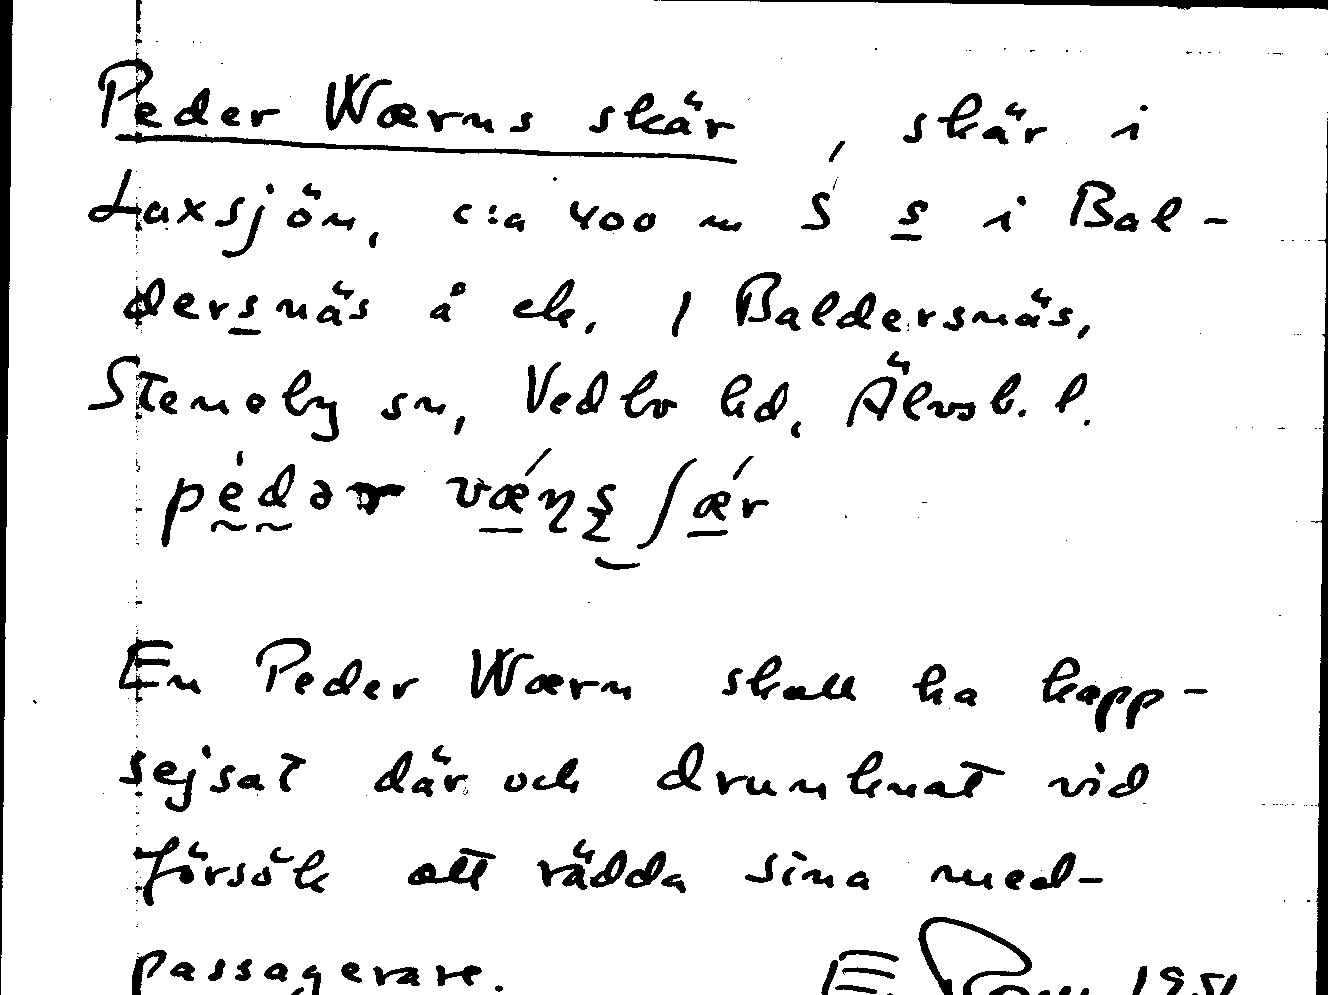 Peder Wærns skär, skär i
Laxsjön, c:a 400 m S s i Bal-
dersnäs å ek, 1 Baldersnäs,
Steneby sn, Vedbo hd, Älvsb. l.
En Peder Wærn skall ha kapp-
sejsat där och drunknat vid
försök att rädda sina med-
passagerare. E.